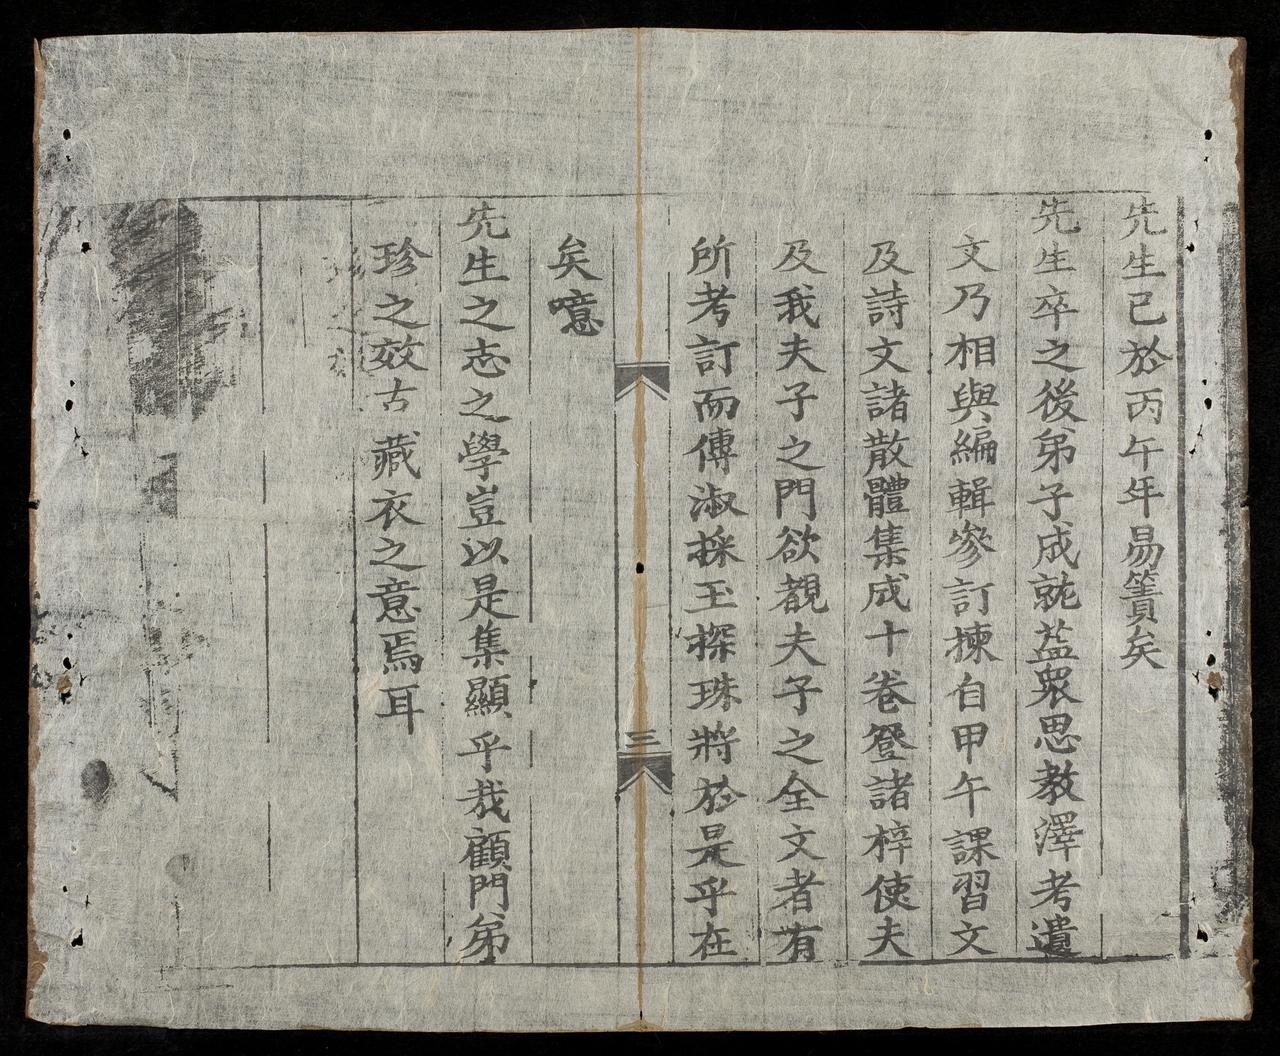 先生已於丙午年易簀矣
先生卒之後弟子成就益衆思教澤考遺
文乃相與編輯參訂揀自甲午課習文
及詩文諸散體集成十卷登諸梓使夫
及我夫子之門欲觀夫子之全文者有
所考訂而傳淑採玉探珠將於是乎在
三
矣噫
先生之志之學豈以是集顯乎哉顧門弟
珍之效古藏衣之意焉耳